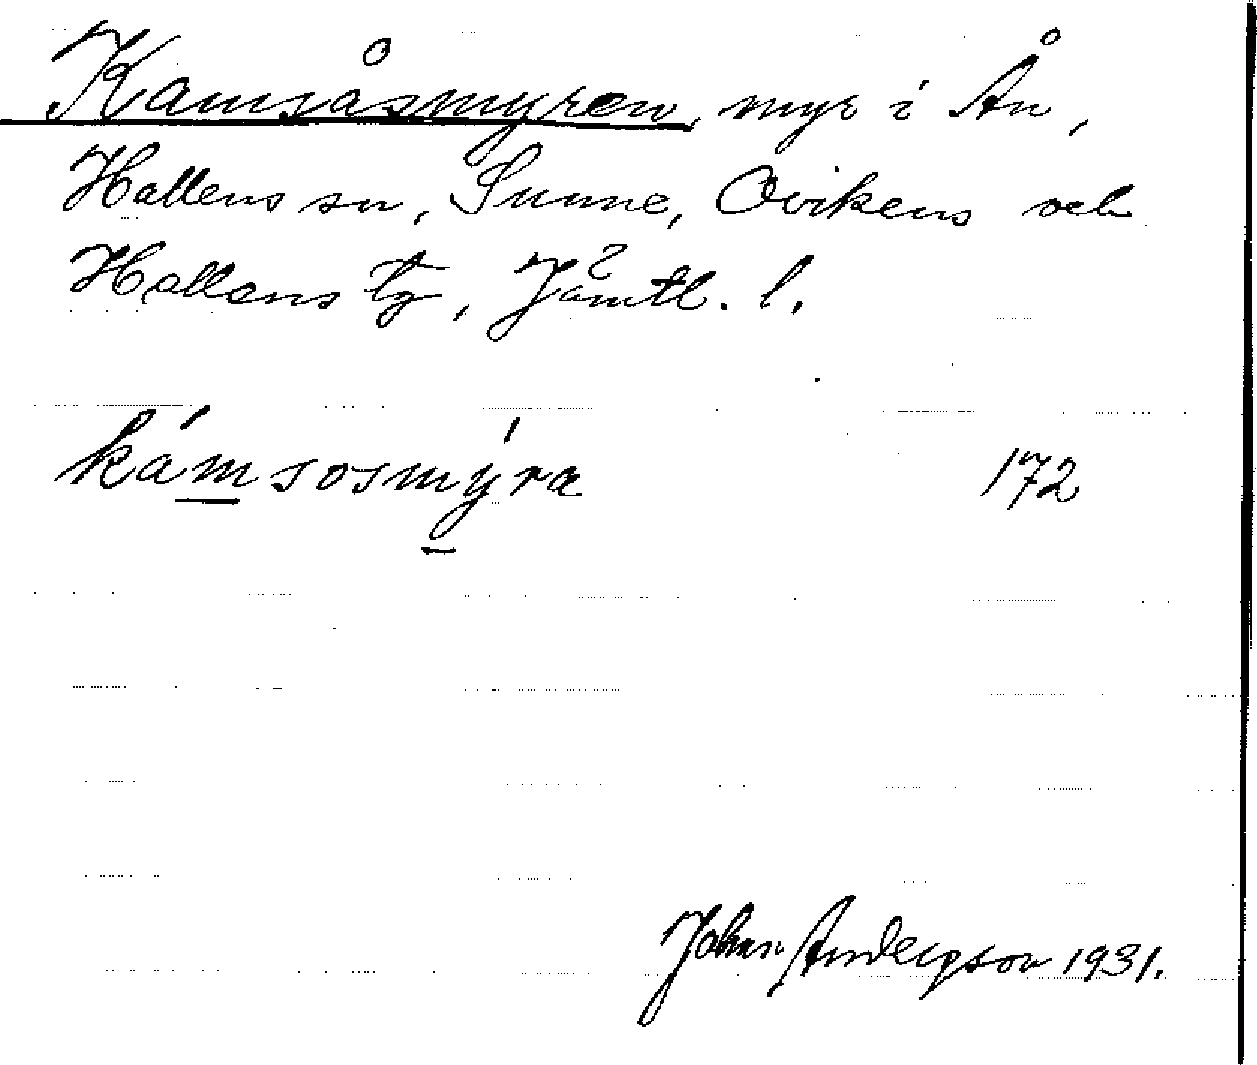 Kamsåsmyren, myr i Ån,
Hallens sn, Sunne, Ovikens och
Hallens tg, Jämtl. l.
kámsosmýra 172
Johan Anderson 1931.